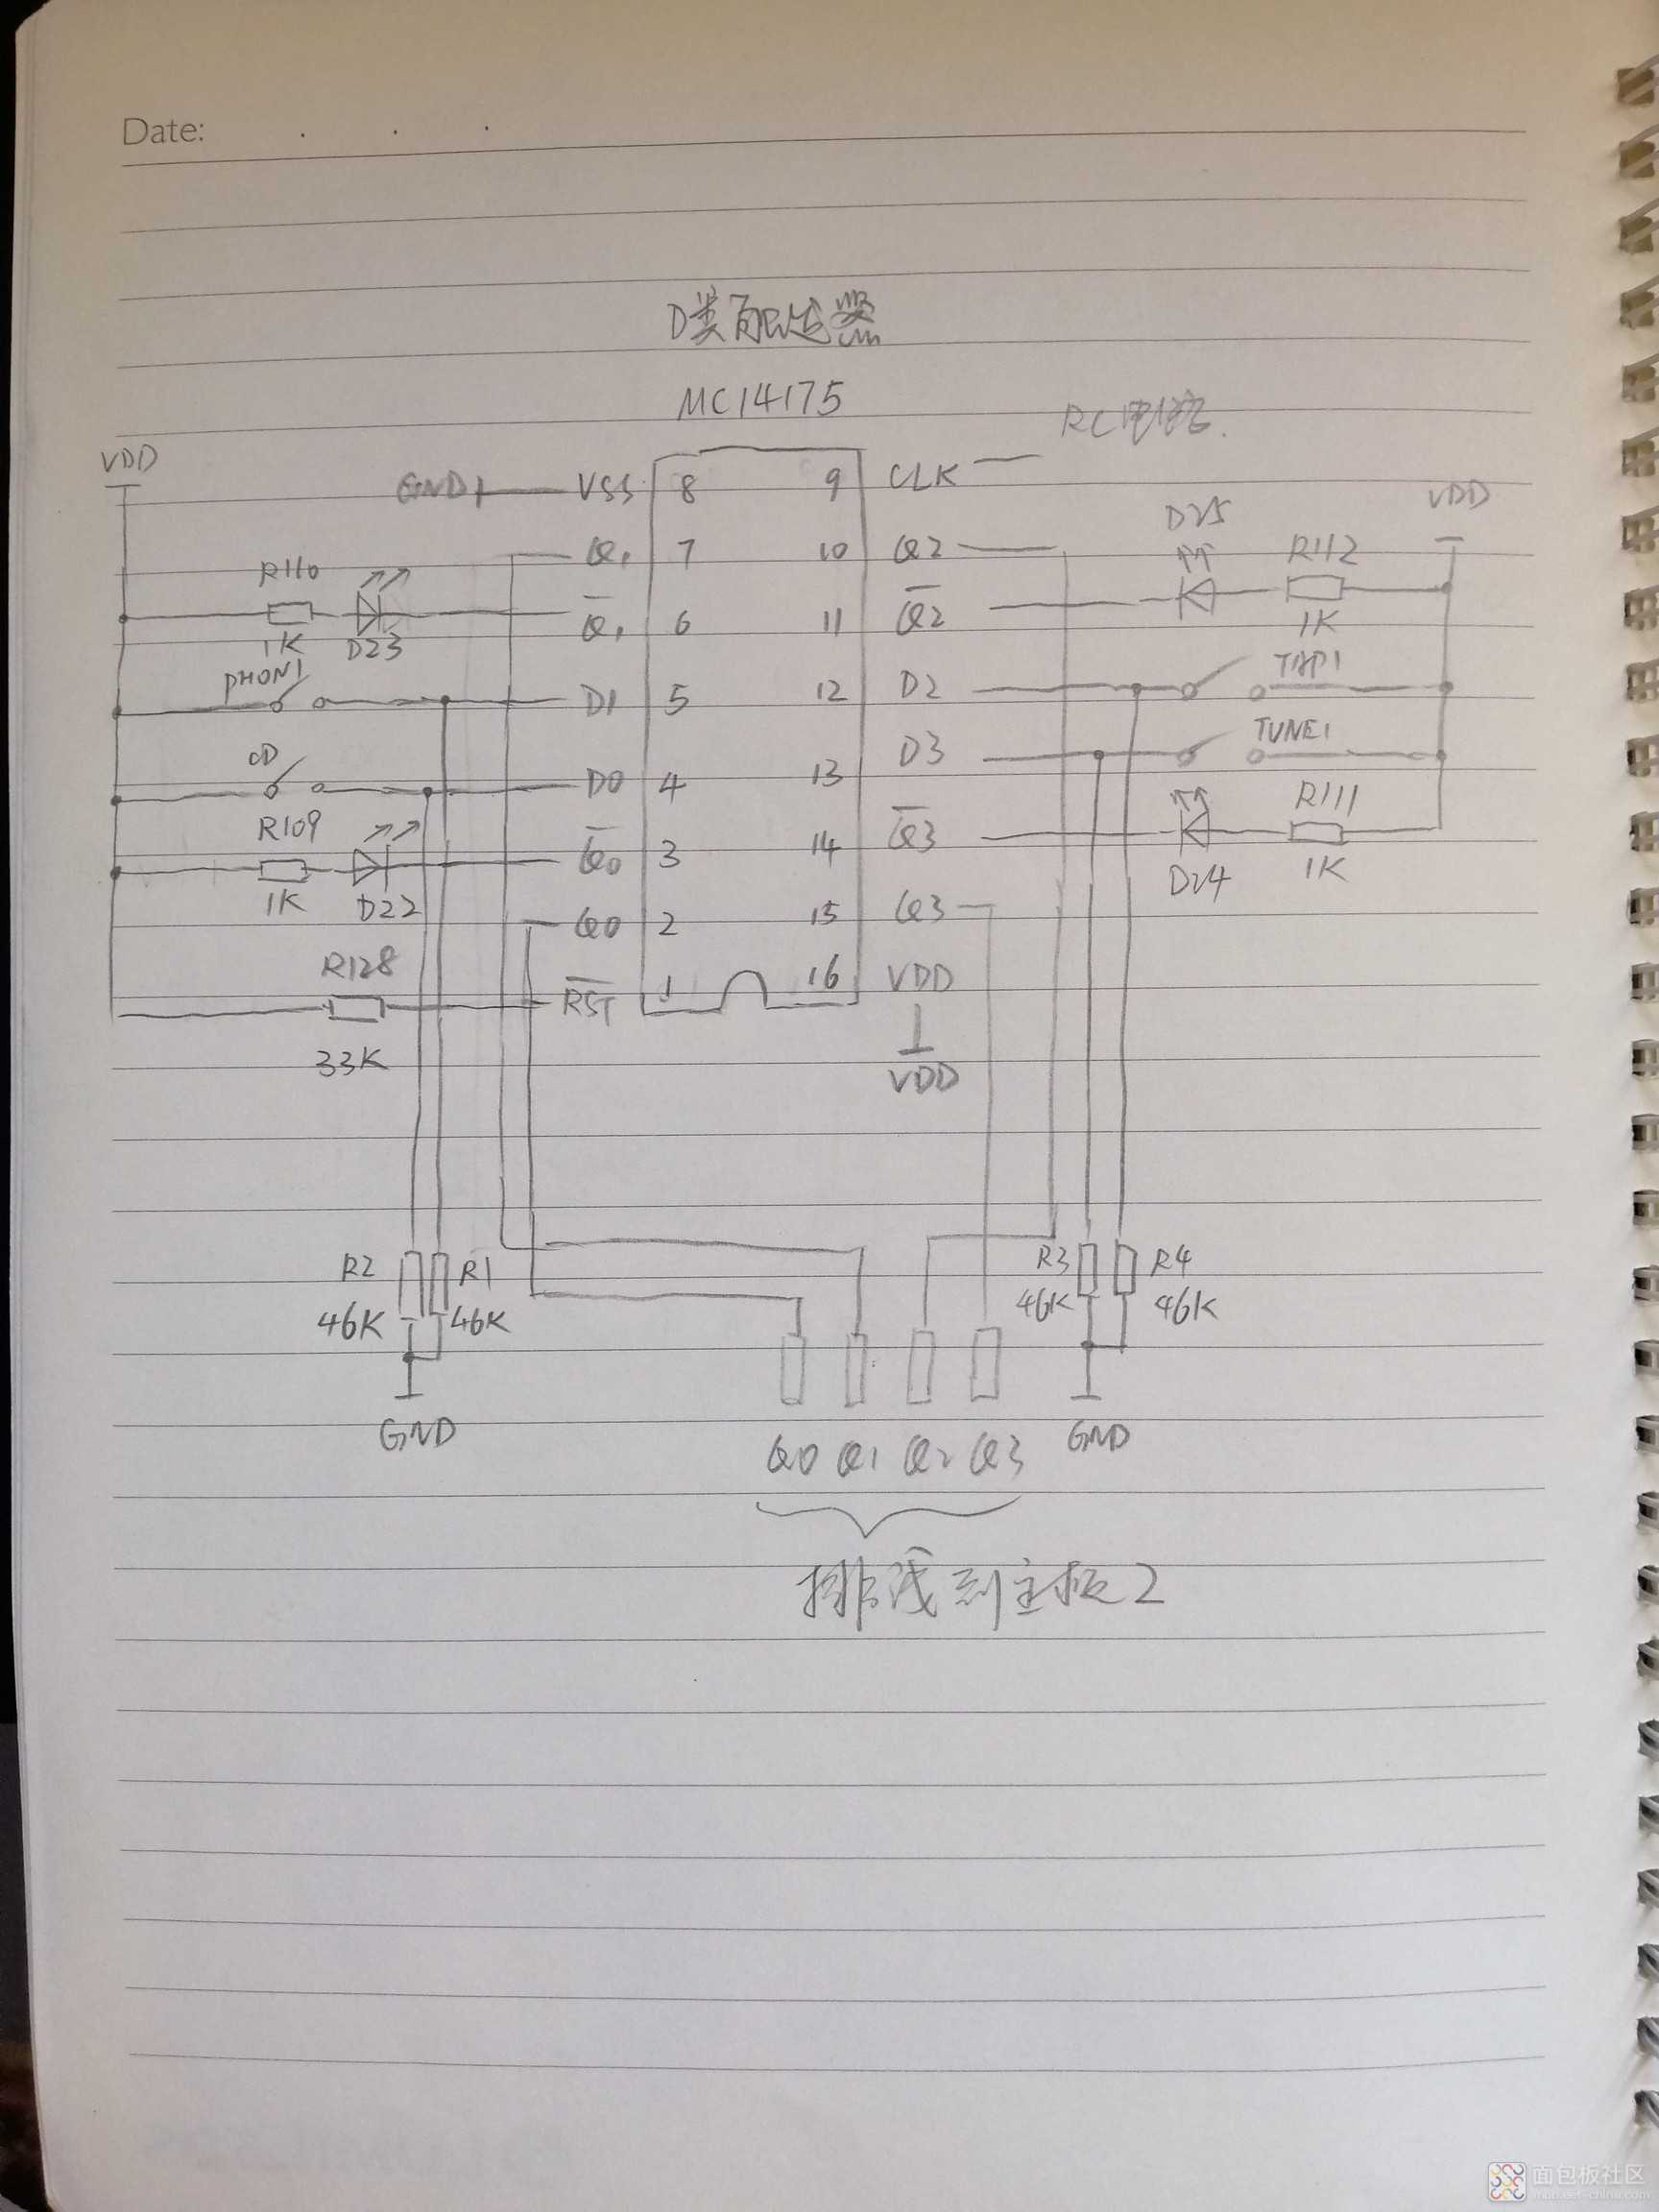 Date:
MC14175
RC电路.
VDD
GND VSS 8 9 CLK
VDD
D25
Q1 7 10 Q2
R110
R112
Q̅1 6 11 Q̅2
1K D23
1K
PHON1
D1 5 12 D2
TAP1
CD
D0 4 13 D3
TUNE1
R109
R111
Q̅0 3 14 Q̅3
1K D22
D24 1K
Q0 2 15 Q3
R128
R̅S̅T̅ 1 16 VDD
33K
VDD
R2 R1
R3 R4
46K 46K
46K 46K
GND
GND
Q0 Q1 Q2 Q3
排线到主板2
面包板社区
mbb.eet-china.com